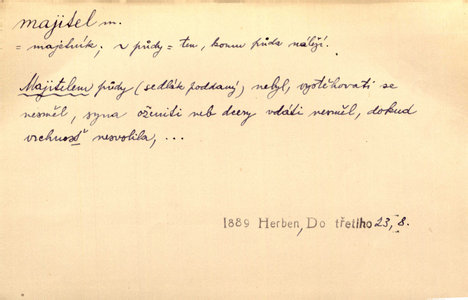 majitel m.
= majetník; ~ půdy = ten, komu půda náleží.
Majitelem půdy (sedlák poddaný) nebyl, vystěhovati se
nesměl, syna oženiti neb dcery vdáti nesměl, dokud
vrchnosť nesvolila, ...
1889 Herben, Do třetího 23, 8.